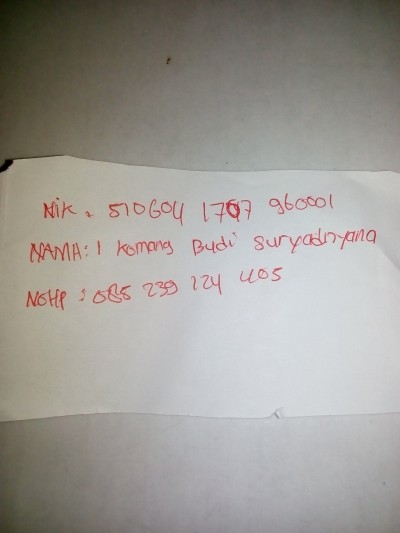 Nik = 510604 1707 960001
NAMA : I Komang Budi Suryadnyana
NoHp : 085 239 224 405